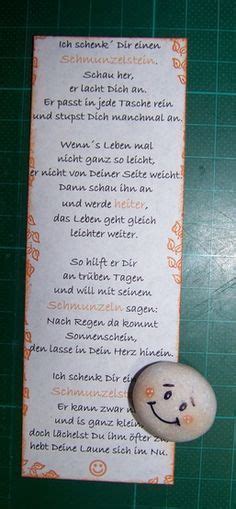 Ich schenk´ Dir einen
Schmunzelstein.
Schau her,
er lacht Dich an.
Er passt in jede Tasche rein
und stupst Dich manchmal an.
Wenn´s Leben mal
nicht ganz so leicht,
er nicht von Deiner Seite weicht.
Dann schau ihn an
und werde heiter,
das Leben geht gleich
leichter weiter.
So hilft er Dir
an trüben Tagen
und will mit seinem
Schmunzeln sagen:
Nach Regen da kommt
Sonnenschein,
den lasse in Dein Herz hinein.
Ich schenk Dir ein
Schmunzelstein
Er kann zwar
und is ganz klein
doch lächelst Du ihm öfter zu,
hebt Deine Laune sich im Nu.